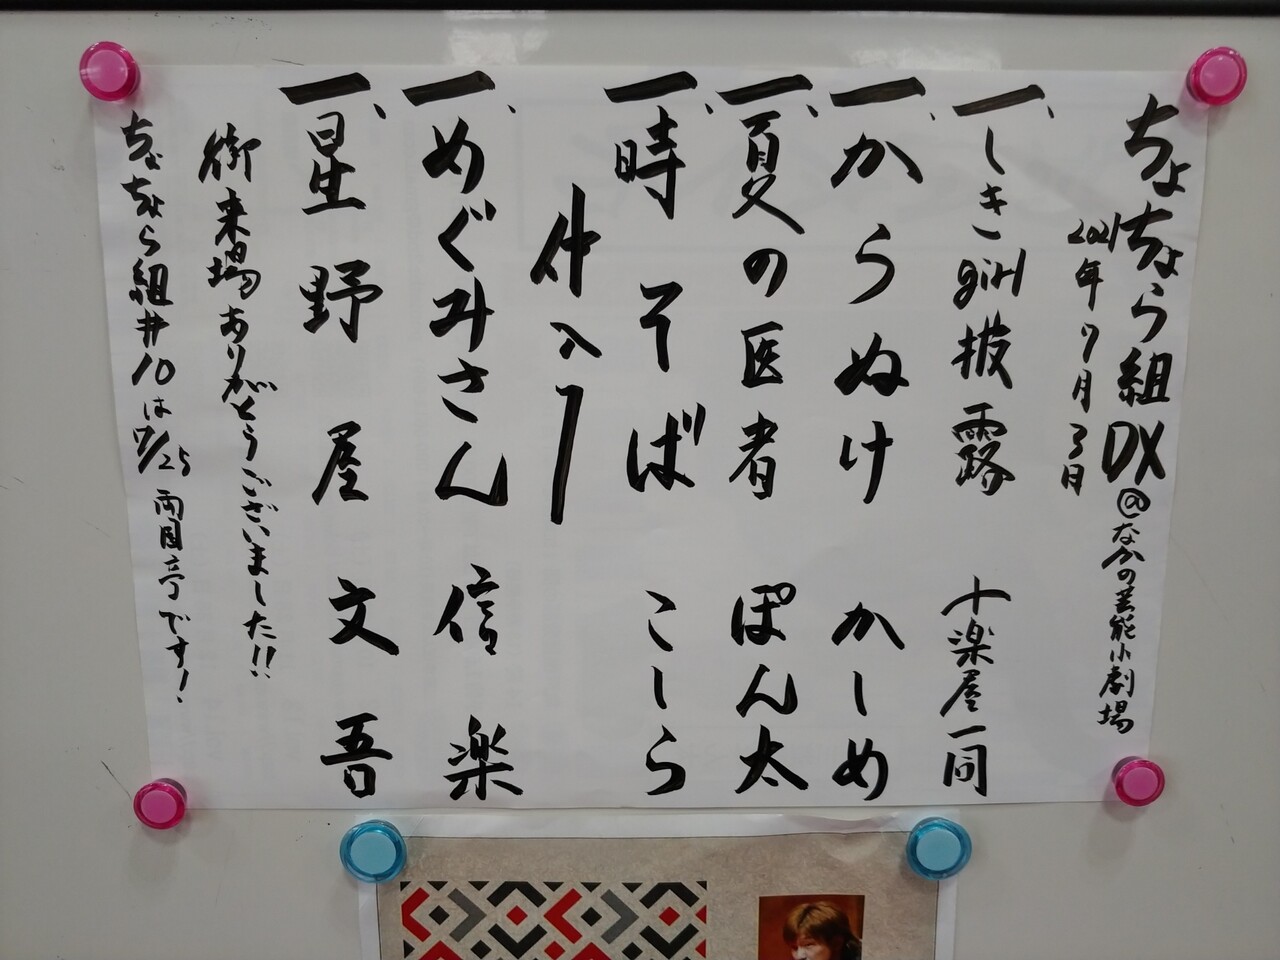 ちょちょら組DX@なかの芸能小劇場
2021年7月3日
一、しきgirl披露 十楽屋一同
一、からぬけ かしめ
一、夏の医者 ぽん太
一、時そば こしら
仲入り
一、めぐみさん 信楽
一、星野屋 文吾
御来場ありがとうございました!!
ちょちょら組#10は9/25両国亭です!